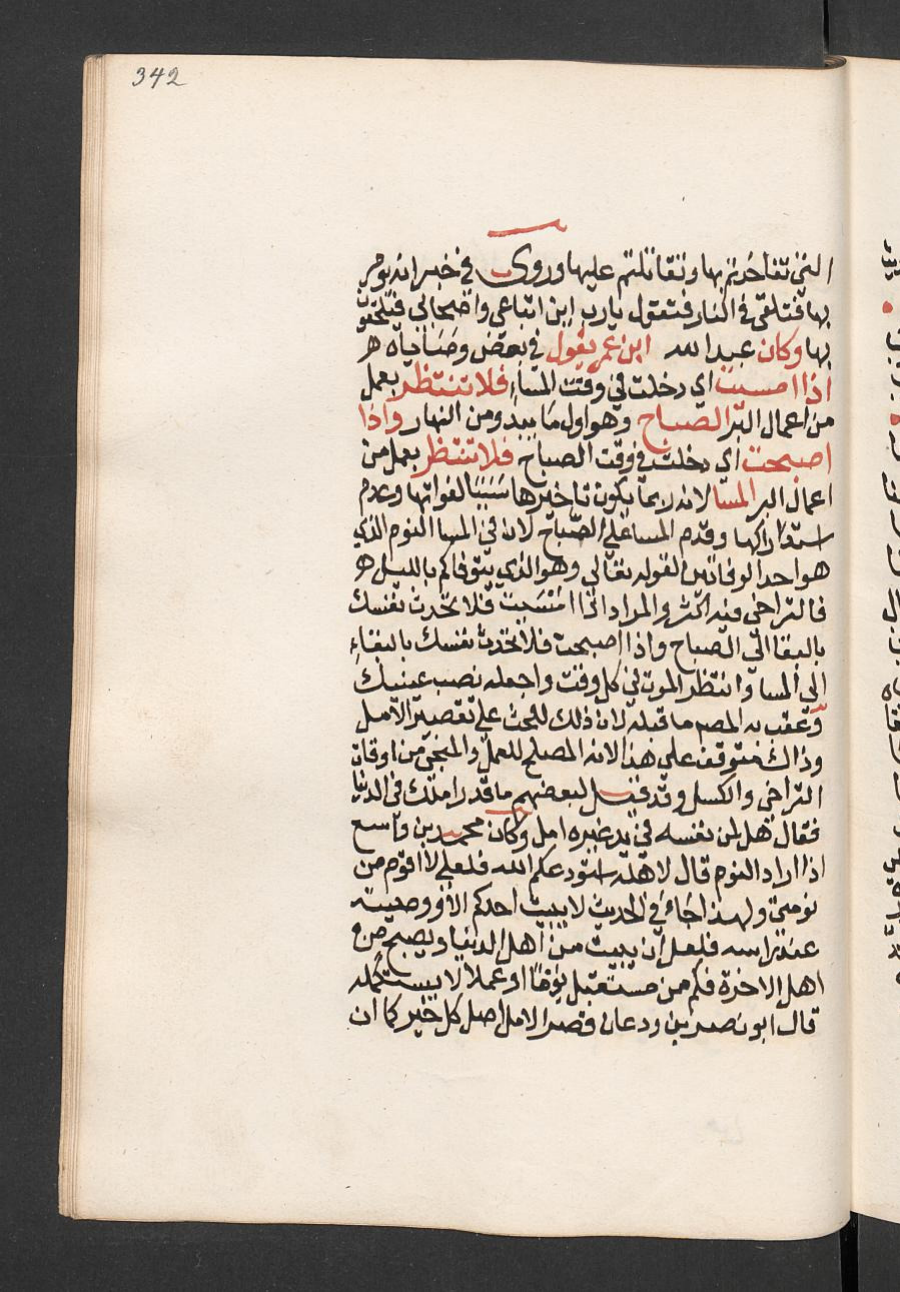 342
التي تفاخرتم بها وتقاتلتم عليها وروى في خبر انه يومر
بها فتلقى في النار فتقول يارب اين اتباعي واصحابي فيلحقون
بها وكان عبد الله ابن عمر يقول في بعض وصاياه
اذا امسيت اي دخلت في وقت المساء فلا تنتظر بعمل
من اعمال البر الصباح وهو اول ما يبدو من النهار واذا
اصبحت اي دخلت في وقت الصباح فلا تنتظر بعمل من
اعمال البر المسا لانه ربما يكون تاخيرها سببا لفواتها وعدم
استدراكها وقدم المسا على الصباح لان في المسا النوم الذي
هو احد الوفاتين لقوله تعالى وهو الذي يتوفاكم بالليل
فالتراخي فيه اكثر والمراد اذا امسيت فلا تحدث نفسك
بالبقا الى الصباح واذا اصبحت فلا تحدث نفسك بالبقاء
الى المسا وانتظر الموت في كل وقت واجعله نصب عينيك
وعقب به المصم ما قبله لان ذلك للحث على تقصير الامل
وذاك متوقف على هذا لانه المصلح للعمل والمنجي من اوقات
التراخي والكسل وقد قيل لبعضهم ما قدر املك في الدنيا
فقال هل لمن نفسه في يد غيره امل وكان محمد بن واسع
اذا اراد النوم قال لاهله استودعكم الله فلعلي لا اقوم من
نومتي ولهذا جاء في الحديث لا يبيت احدكم الا ووصيته
عند راسه فلعل ان يبيت من اهل الدنيا ويصبح من
اهل الاخرة فكم من مستقبل يوما او عملا لا يستكمله
قال ابو نصر بن ودعان قصر الامل اصل كل خير كما ان